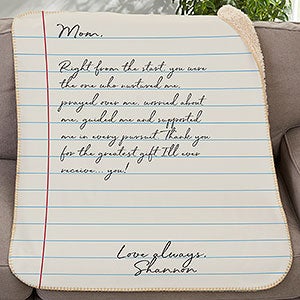 Mom,
Right from the start, you were
the one who nurtured me,
prayed over me, worried about
me, guided me and supported
me in every pursuit. Thank you
for the greatest gift I'll ever
receive... you!
Love always,
Shannon